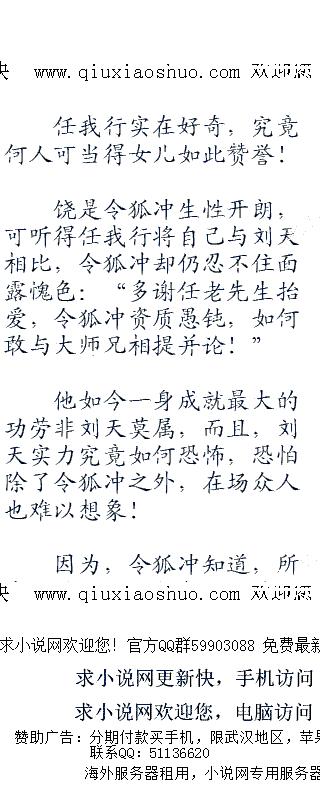 快 www.qiuxiaoshuo.com 欢迎您
任我行实在好奇，究竟
何人可当得女儿如此赞誉！
饶是令狐冲生性开朗，
可听得任我行将自己与刘天
相比，令狐冲却仍忍不住面
露愧色：“多谢任老先生抬
爱，令狐冲资质愚钝，如何
敢与大师兄相提并论！”
他如今一身成就最大的
功劳非刘天莫属，而且，刘
天实力究竟如何恐怖，恐怕
除了令狐冲之外，在场众人
也难以想象！
因为，令狐冲知道，所
快 www.qiuxiaoshuo.com 欢迎您
求小说网欢迎您！官方QQ群59903088 免费最新
求小说网更新快，手机访问
求小说网欢迎您，电脑访问
赞助广告：分期付款买手机，限武汉地区，苹果
联系QQ：51136620
海外服务器租用，小说网专用服务器